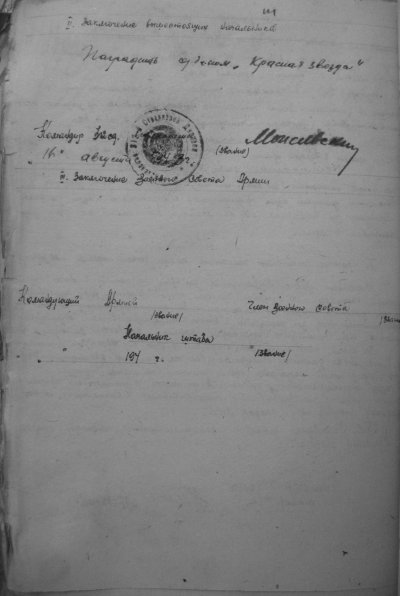 II. Заключение вышестоящих начальников
Наградить орденом „Красная звезда“
Командир
„16“ августа
(звание)
III. Заключение Военного Совета Армии
Командующий Армией
Член Военного Совета
/звание/
/звание/
Начальник штаба
„ “ 194 г.
/звание/